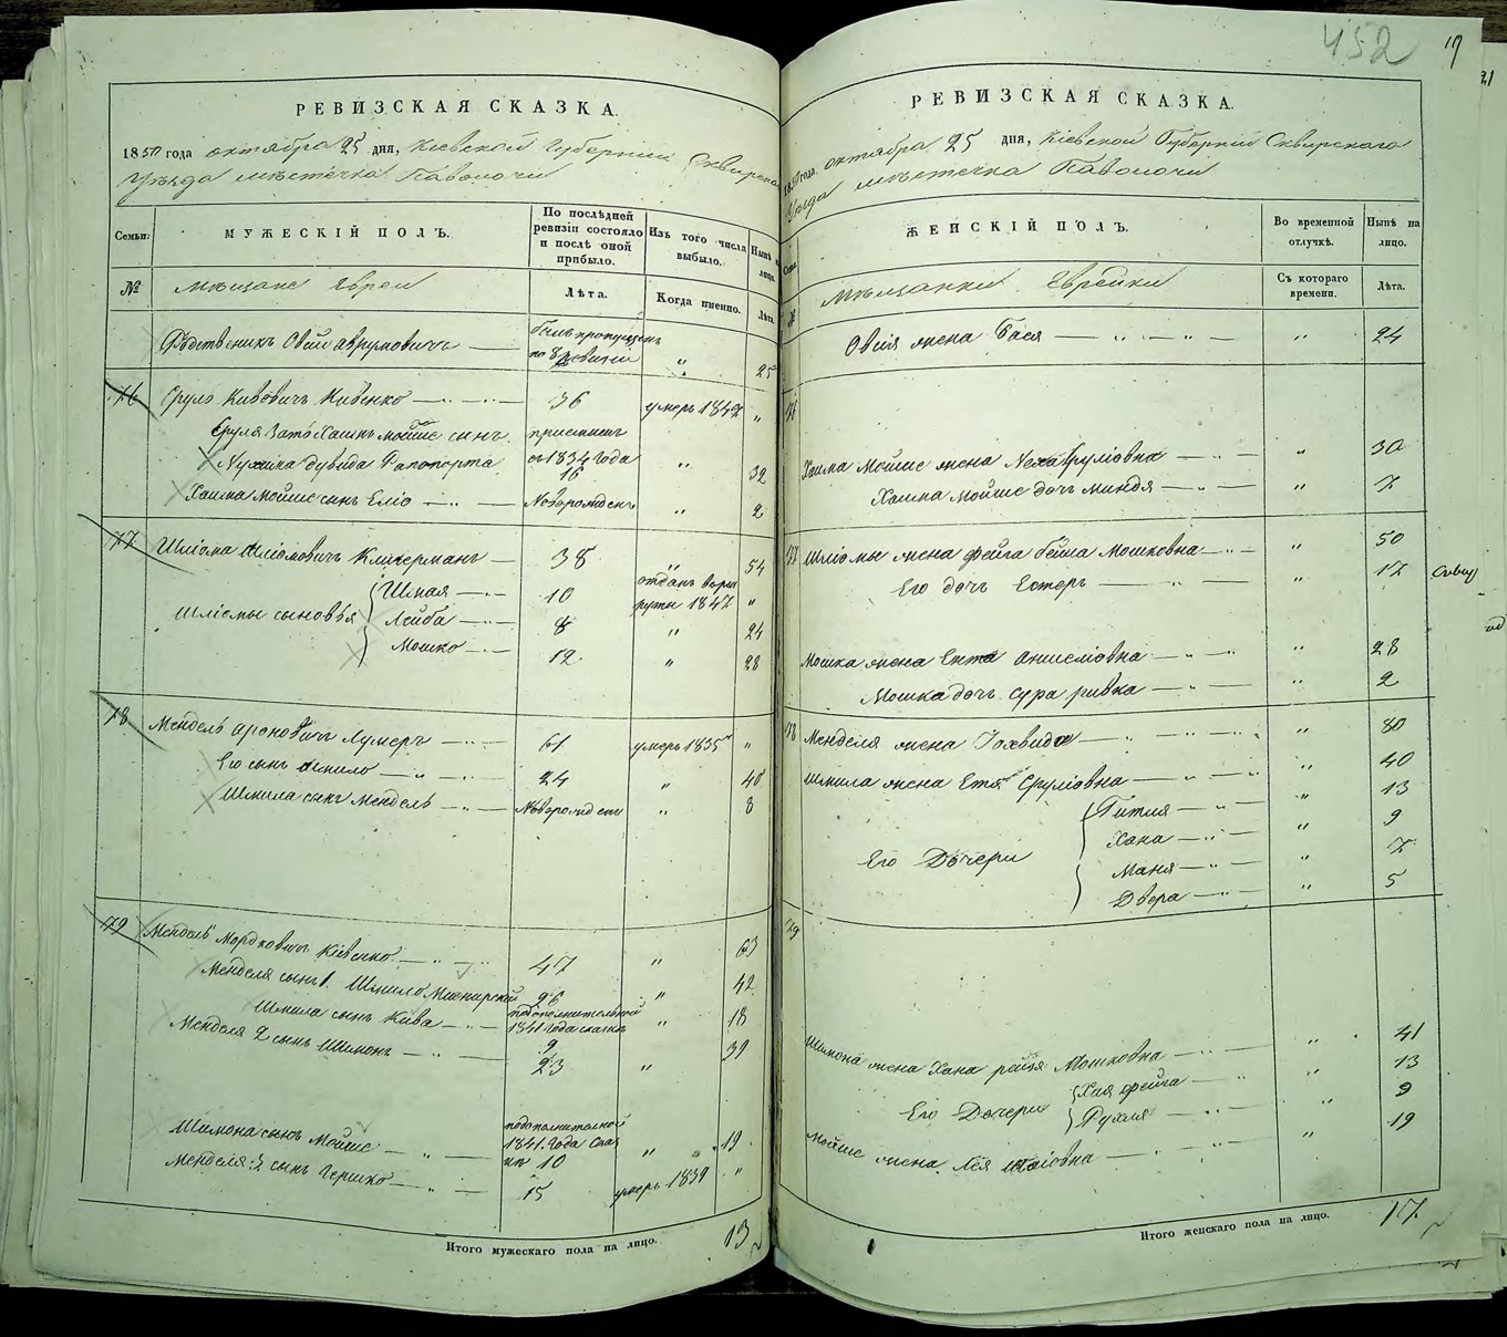 452
17
21
РЕВИЗСКАЯ СКАЗКА.
1850 года октября 25 дня, Кіевской Губерніи Сквирскаго
Уѣзда мѣстечка Паволочи
Семьи.
МУЖЕСКІЙ ПОЛЪ.
По послѣдней ревизіи состояло и послѣ оной прибыло.
Изъ того числа выбыло.
Нынѣ на лицо.
№
Мѣщане Евреи
Лѣта.
Когда именно.
Лѣта.
Овсій Аврумовичъ был пропущенъ по 8 ревизіи " 25
76 Сруль Кивовичъ Кивенко 36 умеръ 1842 "
Сруля зять Хаимъ Мойше сынъ приписанъ
Дувида Рапопорта съ 1834 года 16 " 32
Хаима Мойше сынъ Еліо Новорожденъ " 2
77 Шліома Шліомовичъ 38 " 54
Шліомы сыновья
Шмая 10 отданъ в рекруты 1847 "
Лейба 8 " 24
Мошко 12 " 28
78 Мендель Ароновичъ Лумеръ 61 умеръ 1835 "
Его сынъ Шмило 24 " 40
Шмила сынъ Мендель Новорожденъ " 8
79 Мендель Мордковичъ Ківенко 47 " 63
Менделя сынъ 1. Шмило 26 " 42
Шмила сынъ Кива по дополнительной 1841 года сказке 9 " 18
Менделя 2 сынъ Шимонъ 23 " 39
Шимона сынъ Мойше по дополнителной 1841. года Сказке 10 " 19
Менделя 3. сынъ Гершко 15 умеръ 1839 "
Итого мужескаго пола на лицо. 13
РЕВИЗСКАЯ СКАЗКА.
1850 года октября 25 дня, Кіевской Губерніи Сквирскаго
Уѣзда мѣстечка Паволочи
ЖЕНСКІЙ ПОЛЪ.
Во временной отлучкѣ.
Нынѣ на лицо.
№
Мѣщанки Еврейки
Съ котораго времени.
Лѣта.
Овсія жена Бася " 24
76
Хаима Мойше жена Неха Сруліовна " 30
Хаима Мойше дочь Миндя " 7
77 Шліомы жена Фейга Бейла Мошковна " 50
Его дочь Естеръ " 17
Мошка жена Ента " 28
Мошка дочь Сура Ривка " 2
78 Менделя жена Іохвида " 80
Шмила жена Етя Сруліовна " 40
Его Дочери
Гитля " 13
Хана " 9
Маня " 7
Двера " 5
79
Шимона жена Хана Рейзя Мошковна " 41
Его Дочери
Хая Фейга " 13
Рухля " 9
Мойше жена Лея " 19
Итого женскаго пола на лицо. 17